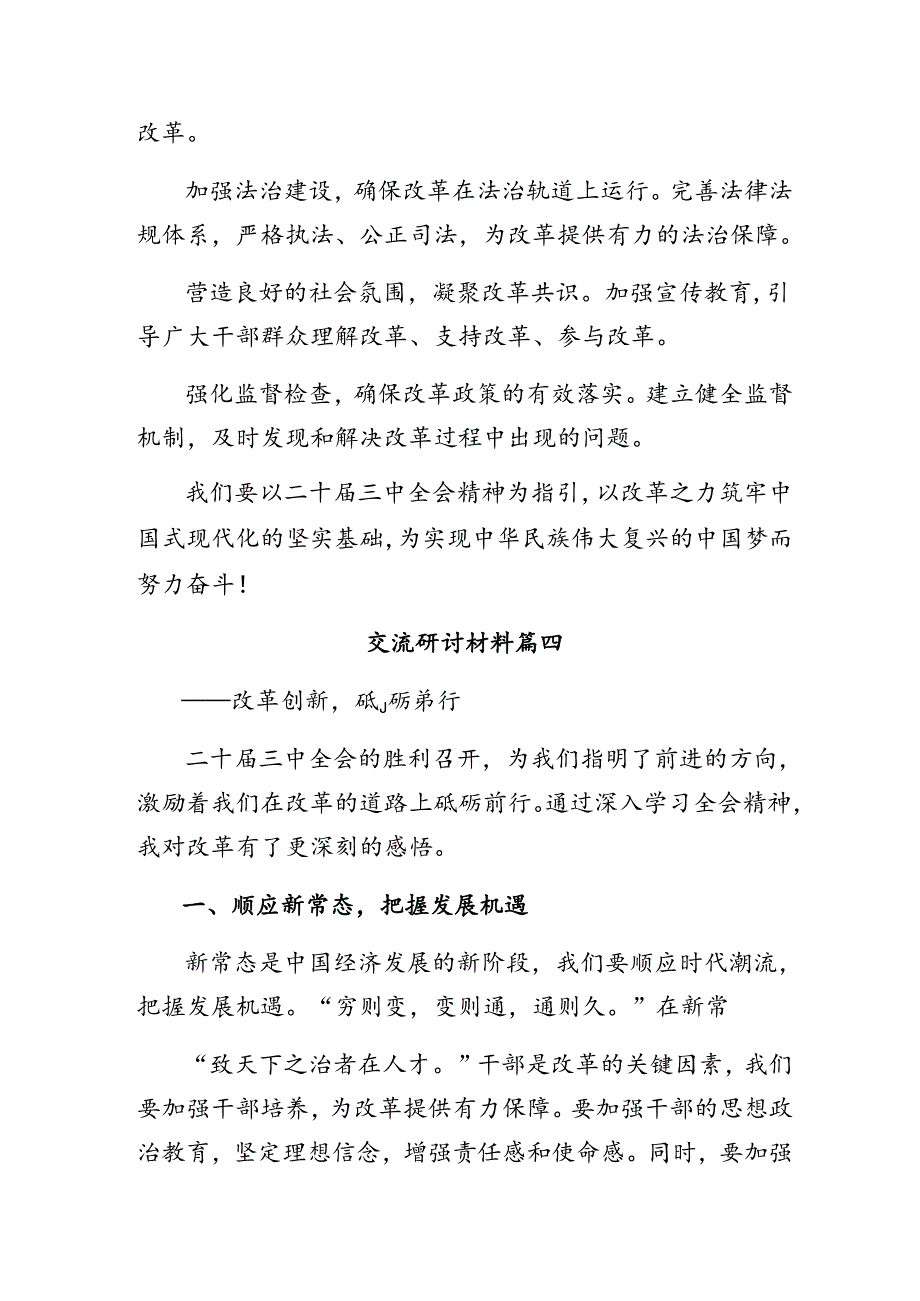 改革。
加强法治建设，确保改革在法治轨道上运行。完善法律法
规体系，严格执法、公正司法，为改革提供有力的法治保障。
营造良好的社会氛围，凝聚改革共识。加强宣传教育,引
导广大干部群众理解改革、支持改革、参与改革。
强化监督检查，确保改革政策的有效落实。建立健全监督
机制，及时发现和解决改革过程中出现的问题。
我们要以二十届三中全会精神为指引,以改革之力筑牢中
国式现代化的坚实基础,为实现中华民族伟大复兴的中国梦而
努力奋斗！
交流研讨材料篇四
——改革创新，砥J砺弟行
二十届三中全会的胜利召开，为我们指明了前进的方向，
激励着我们在改革的道路上砥砺前行。通过深入学习全会精神，
我对改革有了更深刻的感悟。
一、顺应新常态，把握发展机遇
新常态是中国经济发展的新阶段，我们要顺应时代潮流，
把握发展机遇。“穷则变，变则通，通则久。”在新常
“致天下之治者在人才。”干部是改革的关键因素，我们
要加强干部培养，为改革提供有力保障。要加强干部的思想政
治教育，坚定理想信念，增强责任感和使命感。同时，要加强